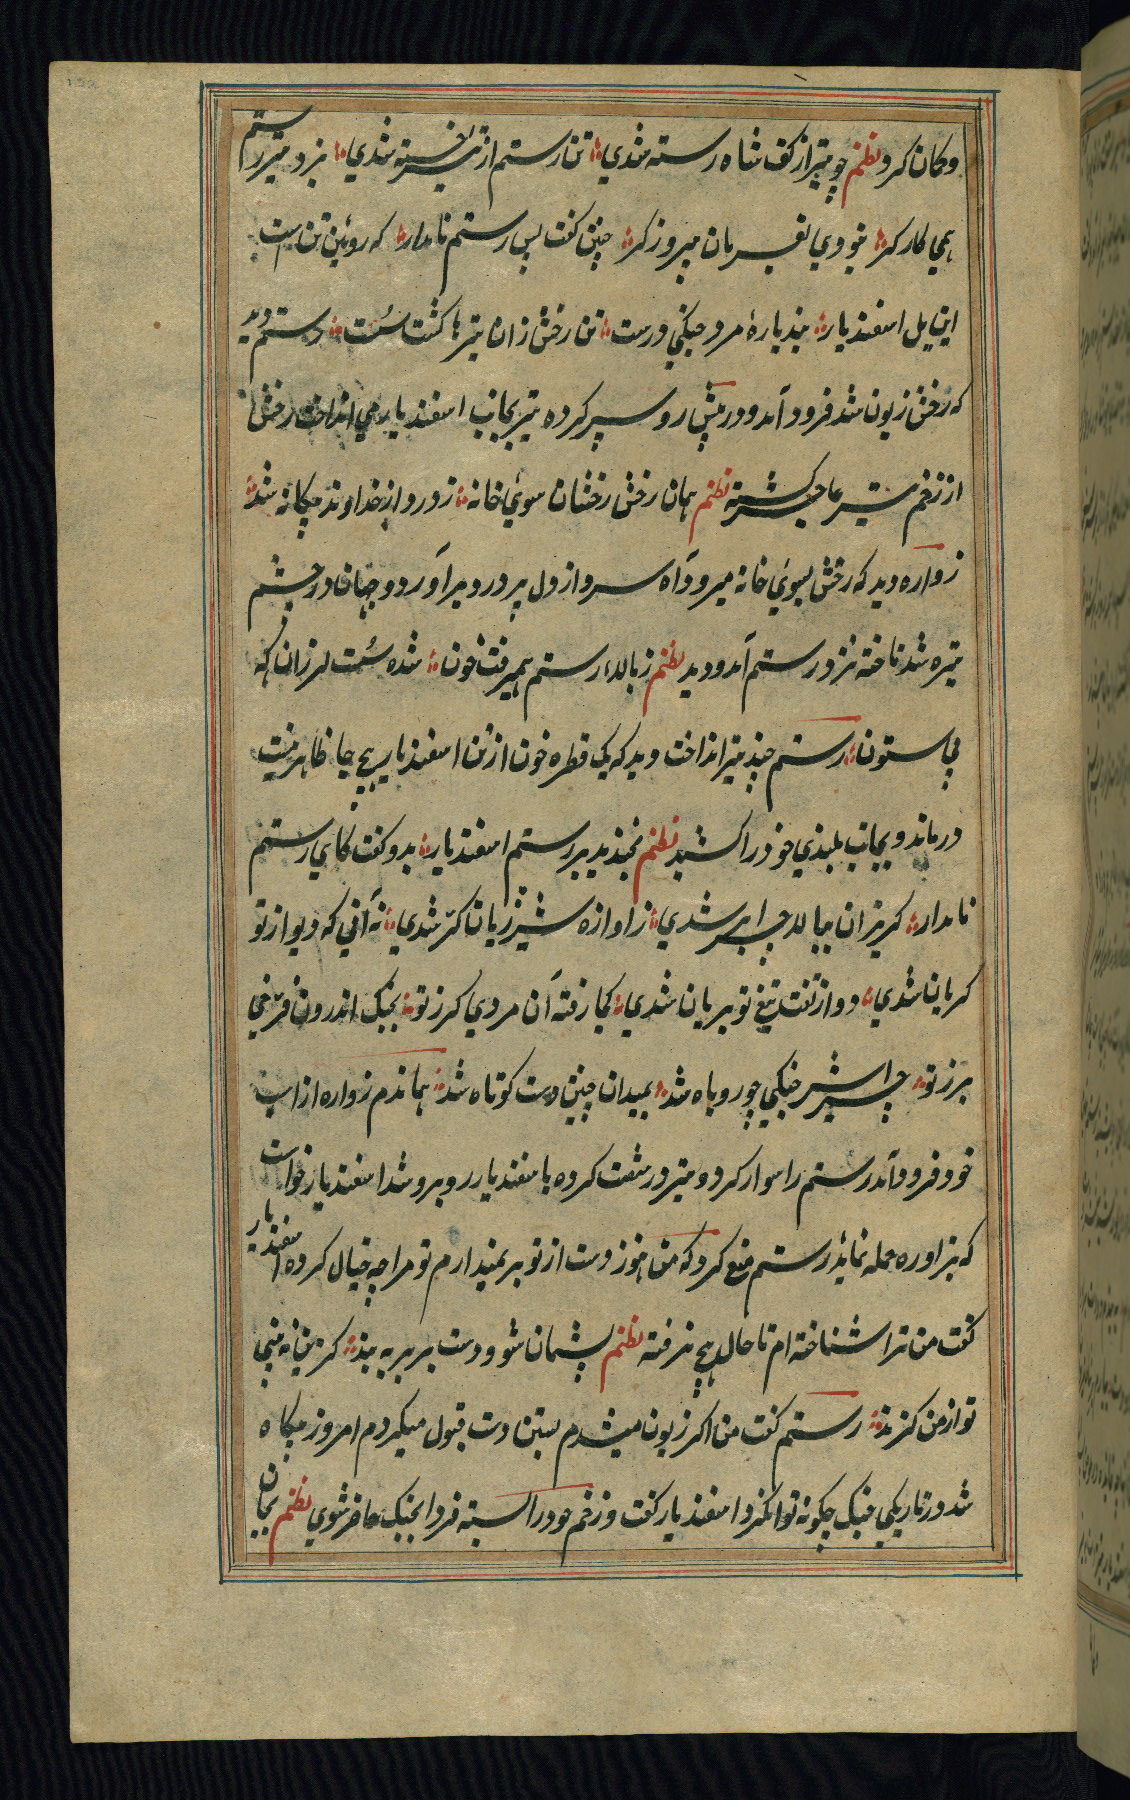 وکمان کرد نظم چو تیر از کف شاه رسته شدی تن رستم از تیر خسته شدی بزد تیر رستم
همی کارکر بخودی بفرمان پیروزکر چنین کفت پس رستم نامدار که روئین تن است
این یل اسفندیار پذیاره مرد جنکی درست تن رخش زان تیرها کشت سُست رستم دید
که رخش زبون شد فرود آمد و در پیش رو سپر کرده تیر بجانب اسفندیار می انداخت رخش
از زخم تیر عاجز کشته نظم همان رخش رخشان سوئی خانه زد رد از خداوند بیکانه شد
زواره دید که رخش بسوئی خانه میرود آه سرد از دل پر درد برآورد و جهان در چشم
تیره شد تاخته نزد رستم آمد و دید نظم ز بالای رستم همیرفت خون شده سُست لرزان که
بی ستون رستم چند تیر انداخت دید که یک قطره خون از تن اسفندیار هیچ جا ظاهر نیست
درماند و بجانب بلندی خود را کشید نظم بخندید بر رستم اسفندیار بدو کفت کای رستم
نامدار کریزان ببالا چرا برشدی ز آوازه شیر ژیان کر شدی نه آنی که دیو از تو
کریان شدی دد از تفت تیغ تو بریان شدی کجا رفته آن مردی کرز تو بجنک اندرون فرّخی
برز تو چرا شیر جنکی چو روباه شد بمیدان چنین دست کوتاه شد هماندم زواره از اسپ
خود فرود آمد رستم را سوار کرد و تیر در شست کرده با اسفندیار روبرو شد اسفندیار خواست
که بزواره حمله نماید رستم منع کرد که من هنوز دست از تو برنمیدارم تو مرا چه خیال کرده اسفندیار
کفت من ترا شناخته ام تا حال هیچ نرفته نظم پشیمان شو و دست برهم به بند کزین نه بینی
تو از من کزند رستم کفت من اکر زبون میشدم بستن دست قبول میکردم امروز بیکاه
شد در تاریکی جنک چکونه توان کرد اسفندیار کفت و زخم خود را بسته فردا بجنک حاضر شوی نظم بجان